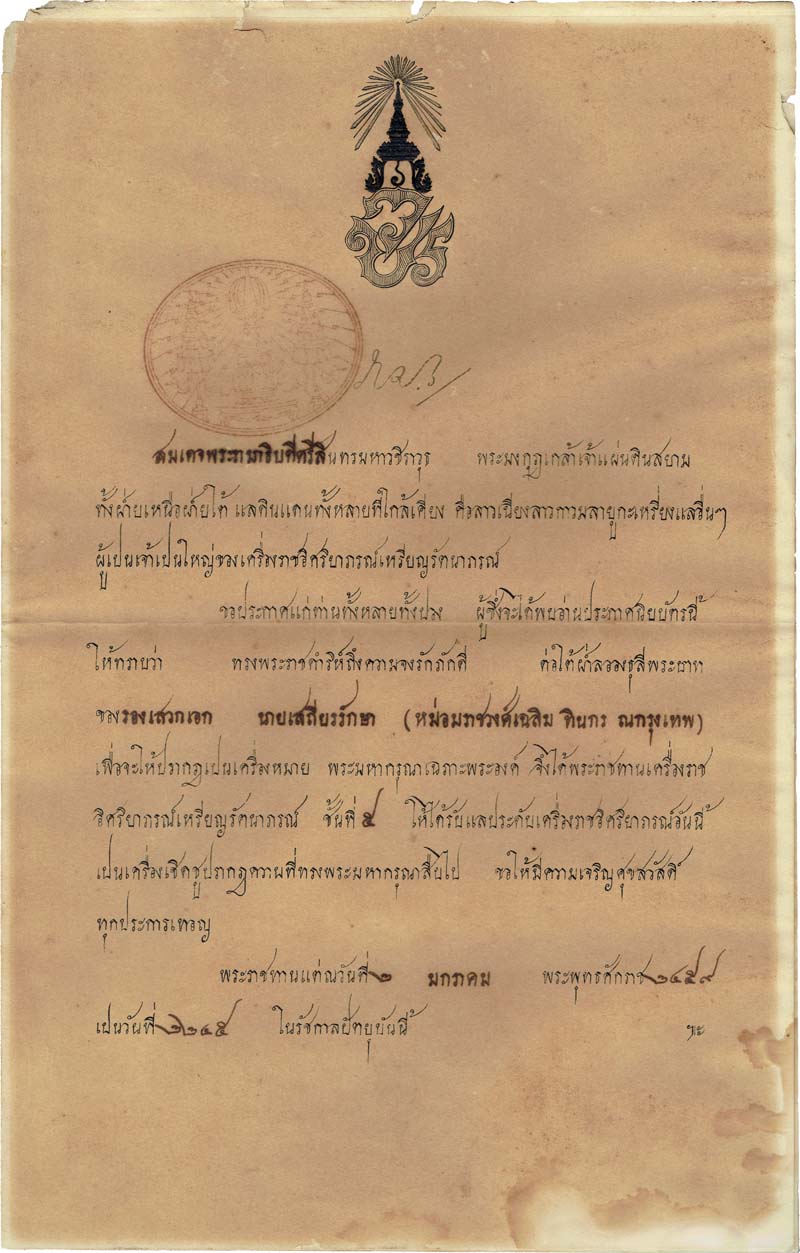 สมเดจพระรามาธิบดีศรีสินทรมหาวชิราวุธ พระมงกุฎเกล้าเจ้าแผ่นดินสยาม
ทั้งฝ่ายเหนือฝ่ายใต้ แลดินแดนทั้งหลายที่ใกล้เคียง คือลาวเฉียงลาวกาวมลายูกะเหรี่ยงแลอื่นๆ
ผู้เป็นเจ้าเป็นใหญ่ของเครื่องราชอิศริยาภรณ์เหรียญรัตนาภรณ์
ขอประกาศแก่ท่านทั้งหลายทั้งปวง ผู้ซึ่งจะได้พบอ่านประกาศนิยบัตรนี้
ให้ทราบว่า ทรงพระราชดำริห์ถึงความจงรักภักดี ต่อใต้ฝ่าลอองธุลีพระบาท
ของรองเสวกเอก นายเสถียรรักษา (หม่อมราชวงศ์เฉลิม ทินกร ณกรุงเทพ)
เพื่อจะให้ปรากฏเป็นเครื่องหมาย พระมหากรุณาเฉภาะพระองค์ จึ่งได้พระราชทานเครื่องราช
อิศริยาภรณ์เหรียญรัตนาภรณ์ ชั้นที่ ๕ ให้ได้รับแลประดับเครื่องราชอิศริยาภรณ์อันนี้
เป็นเครื่องเชิดชูปรากฏความที่ทรงพระมหากรุณาสืบไป ขอให้มีความเจริญศุขสวัสดิ์
ทุกประการเทอญ
พระราชทานแต่ณวันที่ ๒ มกราคม พระพุทธศักราช ๒๔๕๙
เป็นวันที่ ๒๒๔๕ ในรัชกาลปัตยุบันนี้ ฯะ